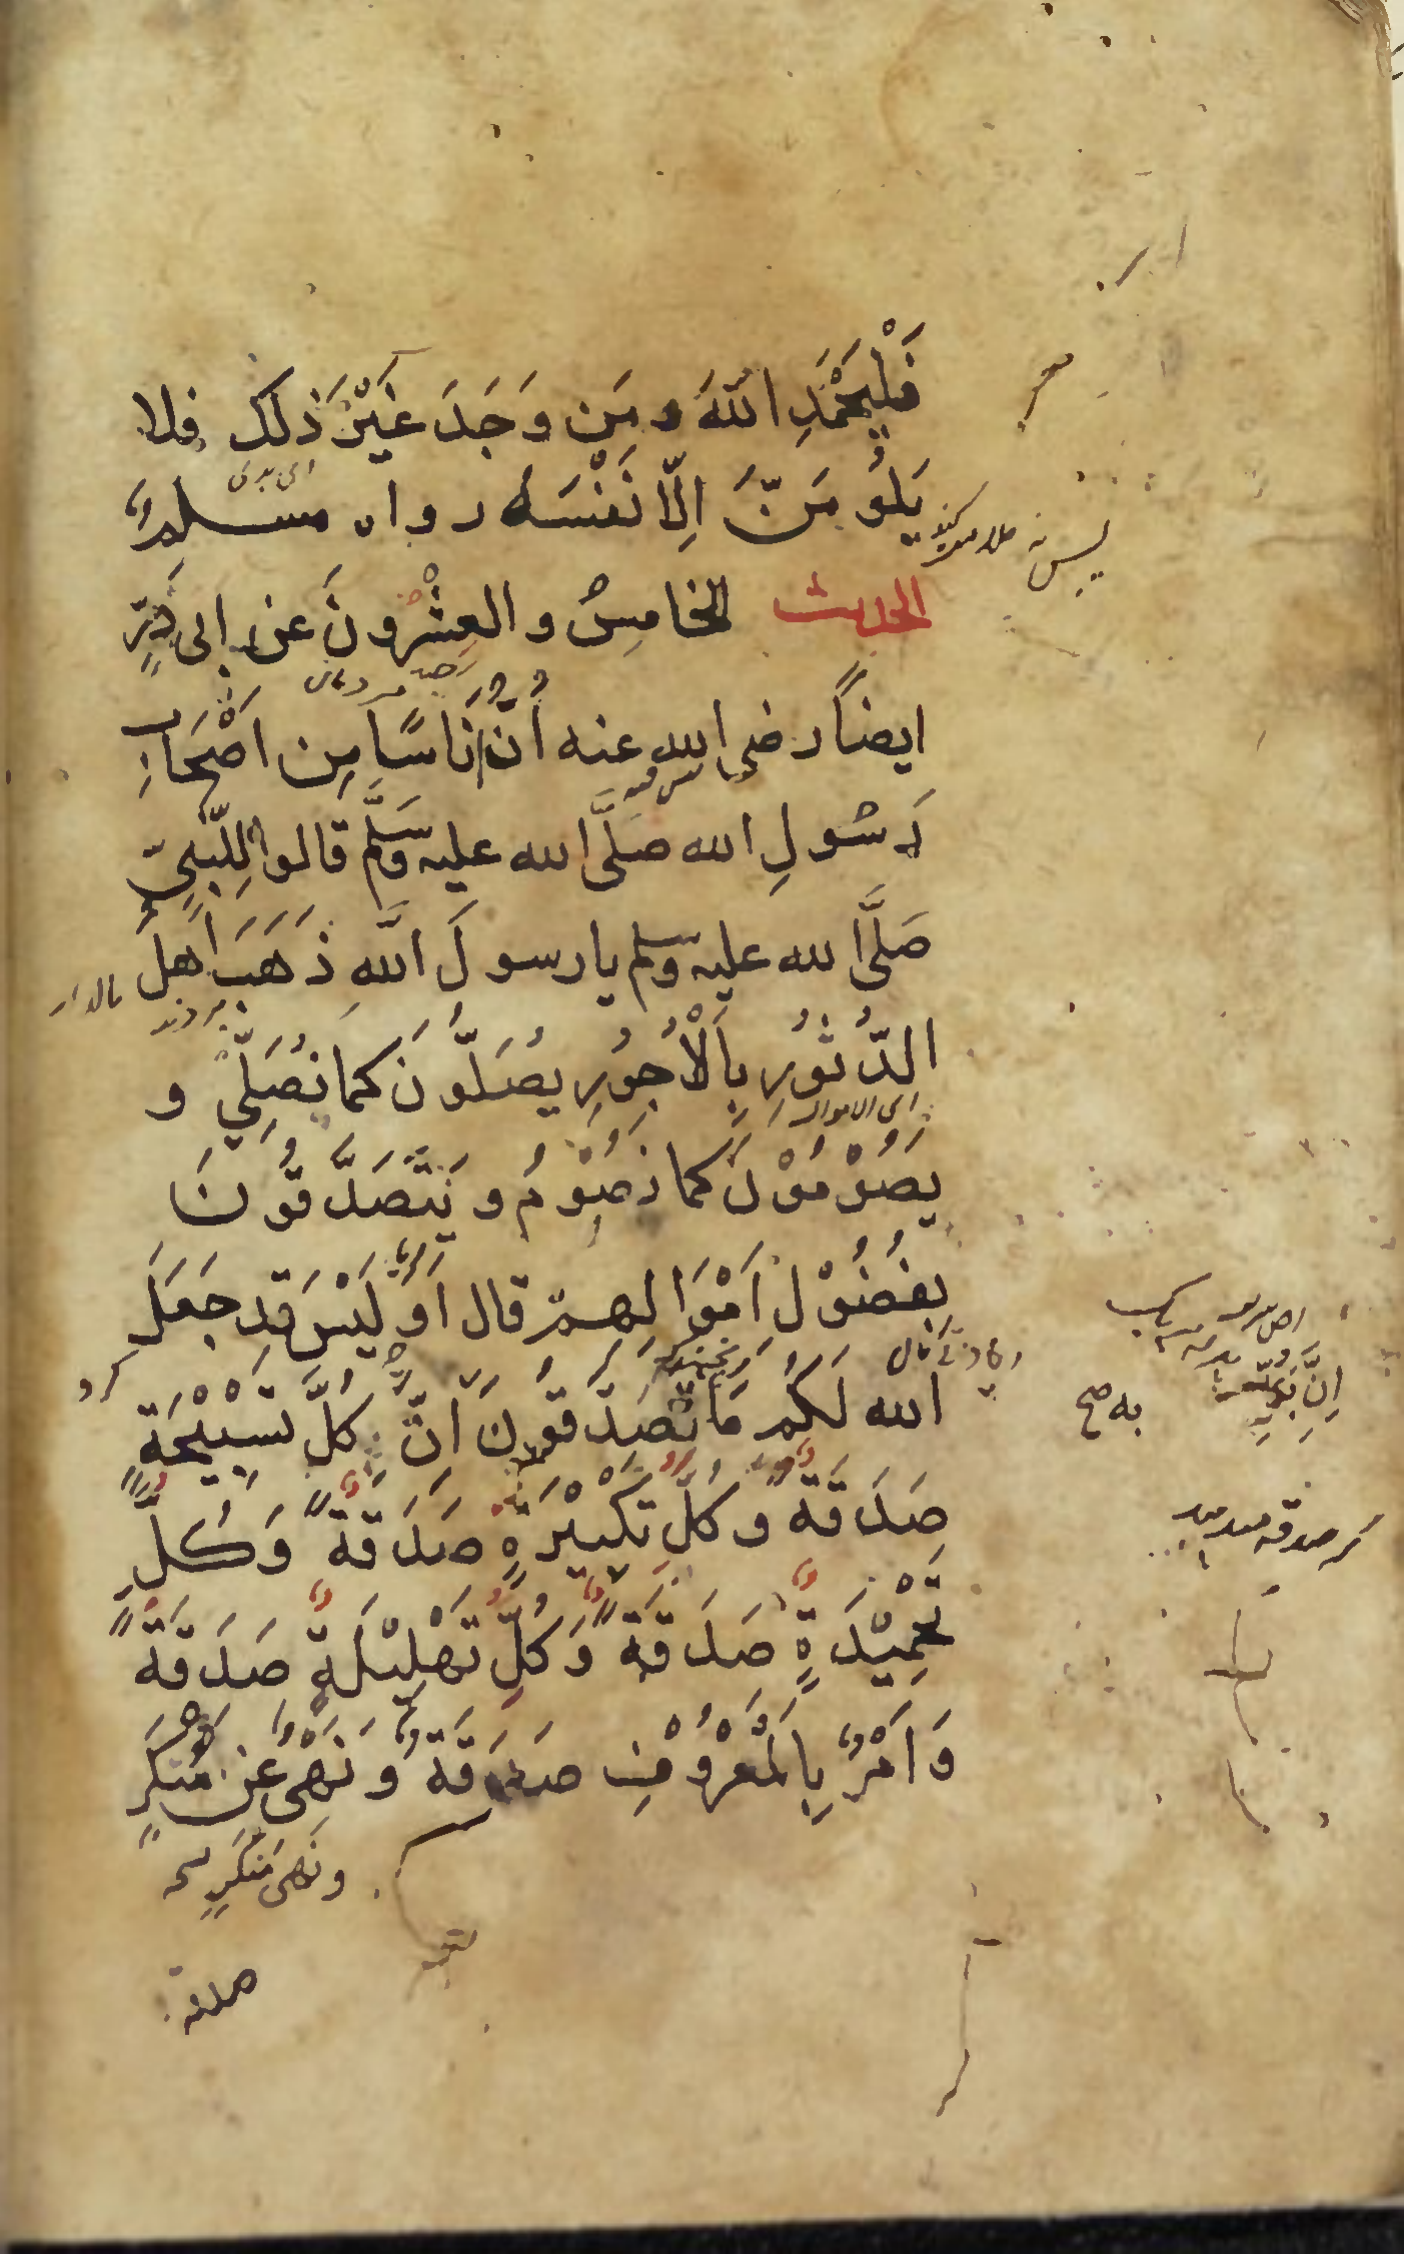 فَلْيَحْمَدِ اللّٰهَ وَمَن وَجَدَ غَيْرَ ذٰلك فلا
ای بدی
يَلُوْمَنَّ اِلَّا نَفْسَهُ رواه مسلمٌ
الحديث الخامِسُ والعِشْرُونَ عن ابى ذَرٍّ
مردمان
ايضاً رضى الله عنه اَنَّ اُنَاسًا مِن اَصْحَابِ
رَسُولِ الله صَلَّى الله عليه وسَلَّم قالوا لِلنَّبِيِّ
صَلَّى الله عليه وسلم يا رسولَ اللّٰهِ ذَهَبَ اَهلُ
مالدار
الدُّثُوْرِ بِالْاُجُوْرِ يُصَلُّونَ كما نُصَلِّيْ و
ای الاموال
يَصُوْمُوْنَ كما نَصُوْمُ و يَتَصَدَّقُونَ
بِفُضُوْلِ اَمْوَالِهِمْ قال اَوَ لَيْسَ قد جَعَلَ
كرد
الله لَكُم مَا تَصَدَّقُونَ اِنَّ كُلَّ تَسْبِيْحَةٍ
به صح
صَدَقَةً وَ كُلَّ تَكْبِيْرَةٍ صَدَقَةً وَ كُلَّ
تَحْمِيْدَةٍ صَدَقَةً وَ كُلِّ تَهْلِيْلَةٍ صَدَقَةً
وَ اَمْرٌ بِالْمَعْرُوْفِ صَدَقَةٌ وَ نَهْىٌ عَن مُنْكَرٍ
ونَهْى مُنْكَرٍ